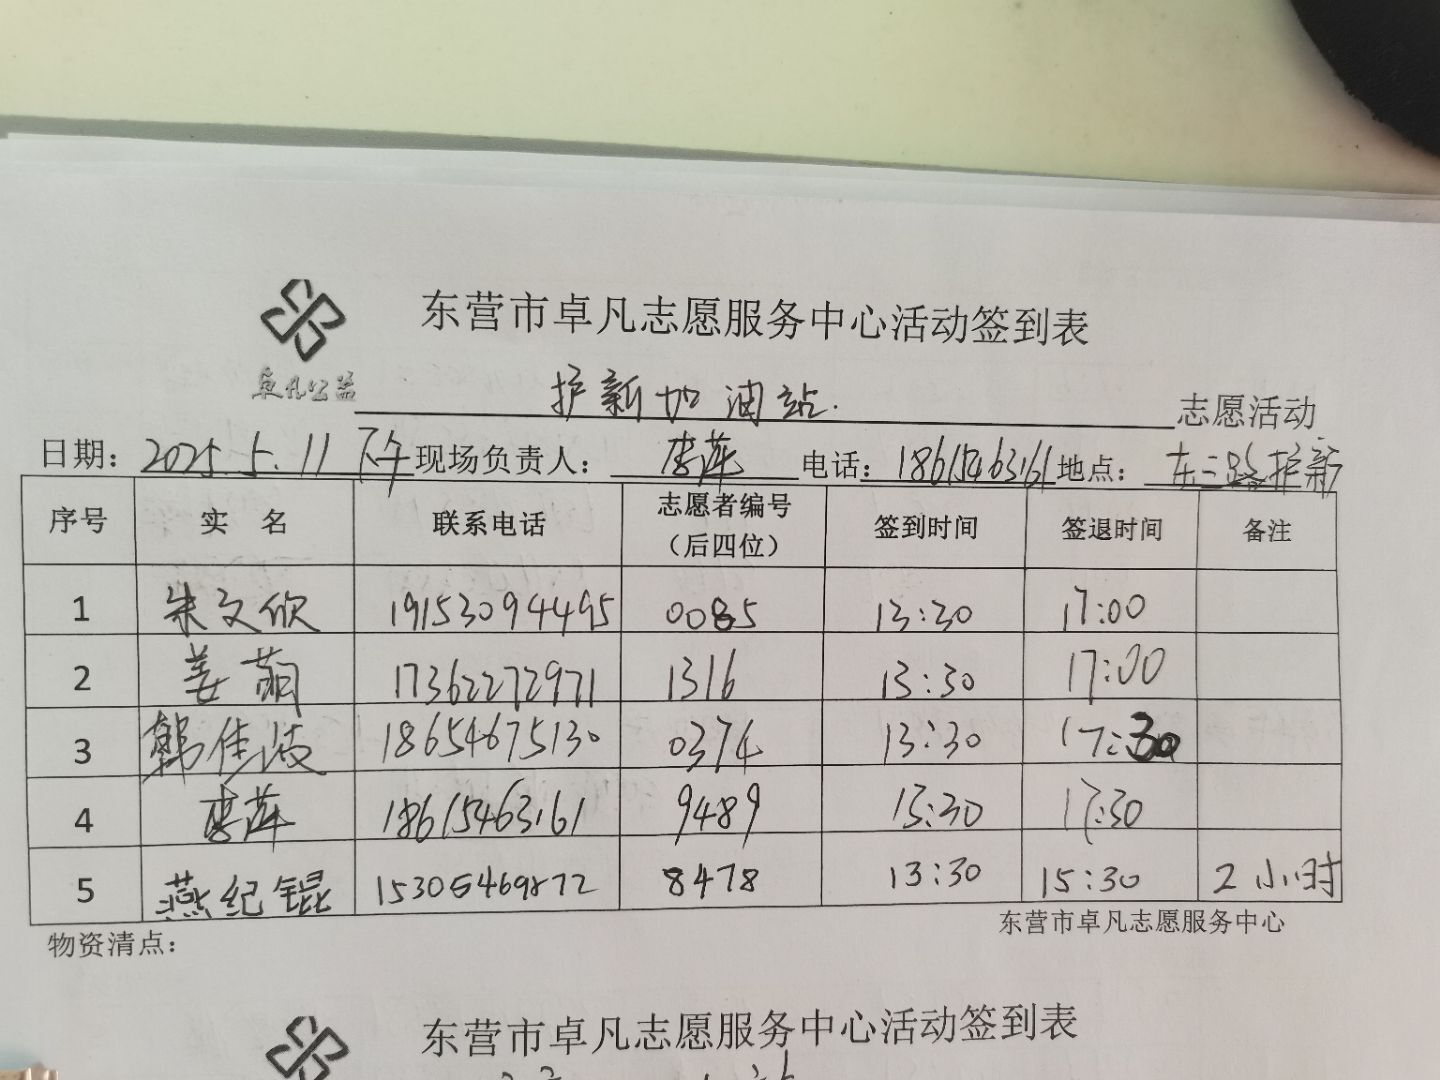 东营市卓凡志愿服务中心活动签到表
卓凡公益 护新加油站 志愿活动
日期：2025.5.11 下午 现场负责人：李萍 电话：18615463161 地点：东三路护新
序号 实 名 联系电话 志愿者编号（后四位） 签到时间 签退时间 备注
1 朱文欣 19153094495 0085 13:30 17:00
2 姜萌 17362272971 1316 13:30 17:00
3 韩佳 18654675130 0374 13:30 17:30
4 李萍 18615463161 9489 13:30 17:30
5 燕纪锟 15305469872 8478 13:30 15:30 2小时
物资清点： 东营市卓凡志愿服务中心
东营市卓凡志愿服务中心活动签到表